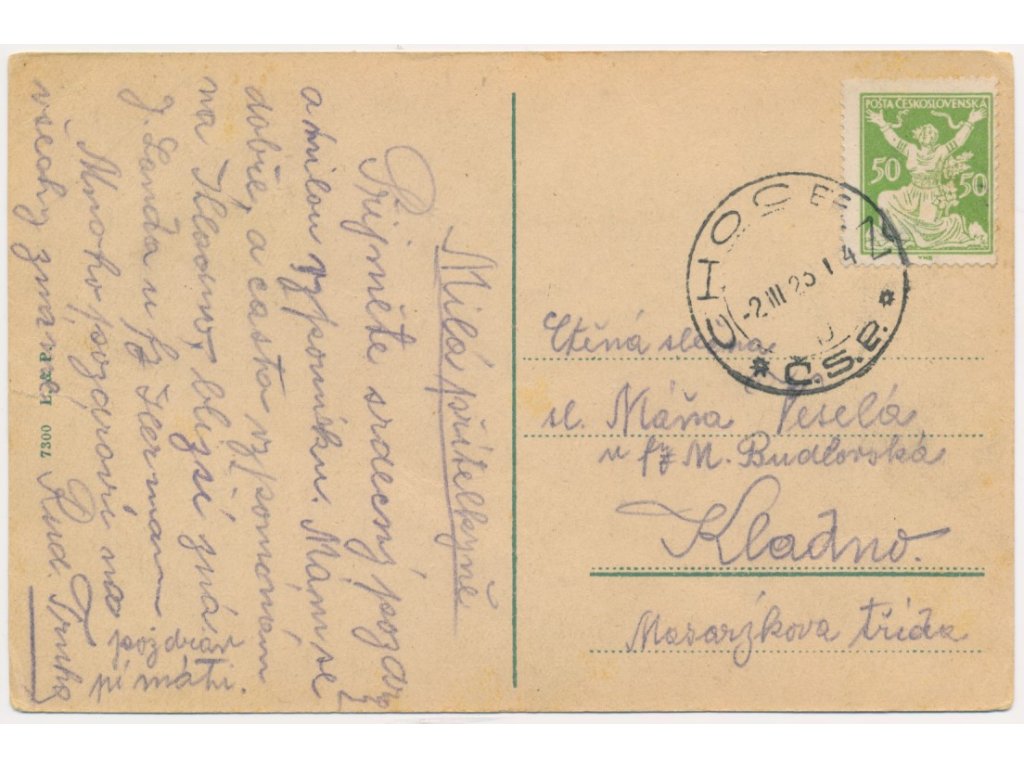 Milá přítelkyně
Přijměte srdečný pozdrav
a milou vzpomínku. Mám se
dobře, a často vzpomínám
na Kladno, blyzsí zná
J. Landa u fy Herman
Mnoho pozdrovů na
všechy známe Rud. Truhq
pozdrav
pí máti.
7300 K.&P.
POŠTA ČESKOSLOVENSKÁ
50 50
CHOCEŇ
-2.III 23 14
* Č.S.P. *
Ctěná slečna
sl. Máňa Veselá
u fy M. Budlovská
Kladno.
Masarykova třída